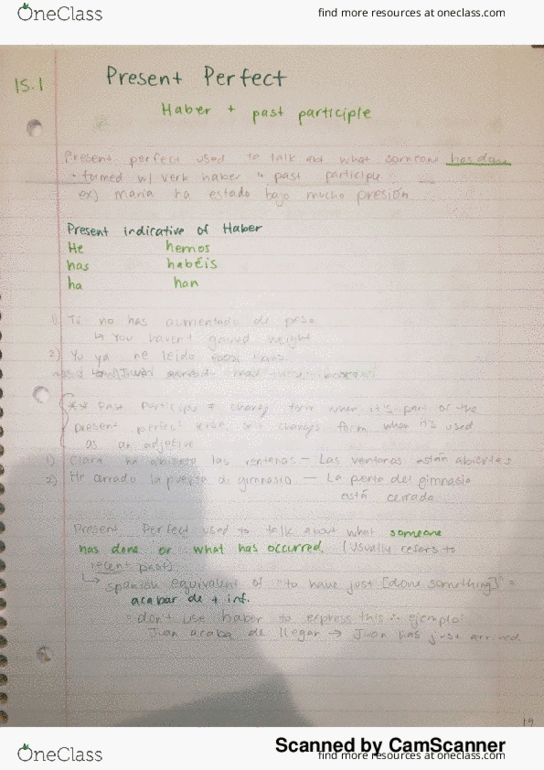 OneClass
find more resources at oneclass.com
15.1
Present Perfect
Haber + past participle
Present perfect used to talk what someone has done
• formed w/ verb haber + past participle
ex) maria ha estado bajo mucho presión
Present indicative of Haber
He hemos
has habéis
ha han
1) Tú no has aumentado de peso
↳ You haven't gained weight
2) Yo ya he leido
** Past Participle change form when it's part of the
present perfect changes form when it's used
as an adjetive
1) Clara ha las ventanas — Las ventanas están abiertas
2) He la puerta gimnasio — La gimnasio
está cerrada
Present Perfect used to talk about what someone
has done or what has occurred. (Usually refers to
recent past)
↳ spanish equivalent of "to have just [done something]" =
acabar de + inf.
don't use haber to express this ejemplo:
Juan acaba de llegar → Juan has just arrived
19
Scanned by CamScanner
OneClass
find more resources at oneclass.com